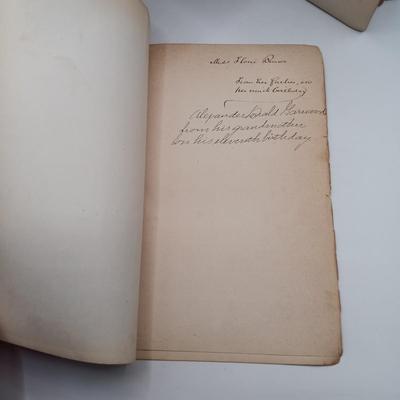 Miss Flora Brown
from her father, on
her ninth birthday
Alexander Garwood
from his grandmother
on his eleventh birthday